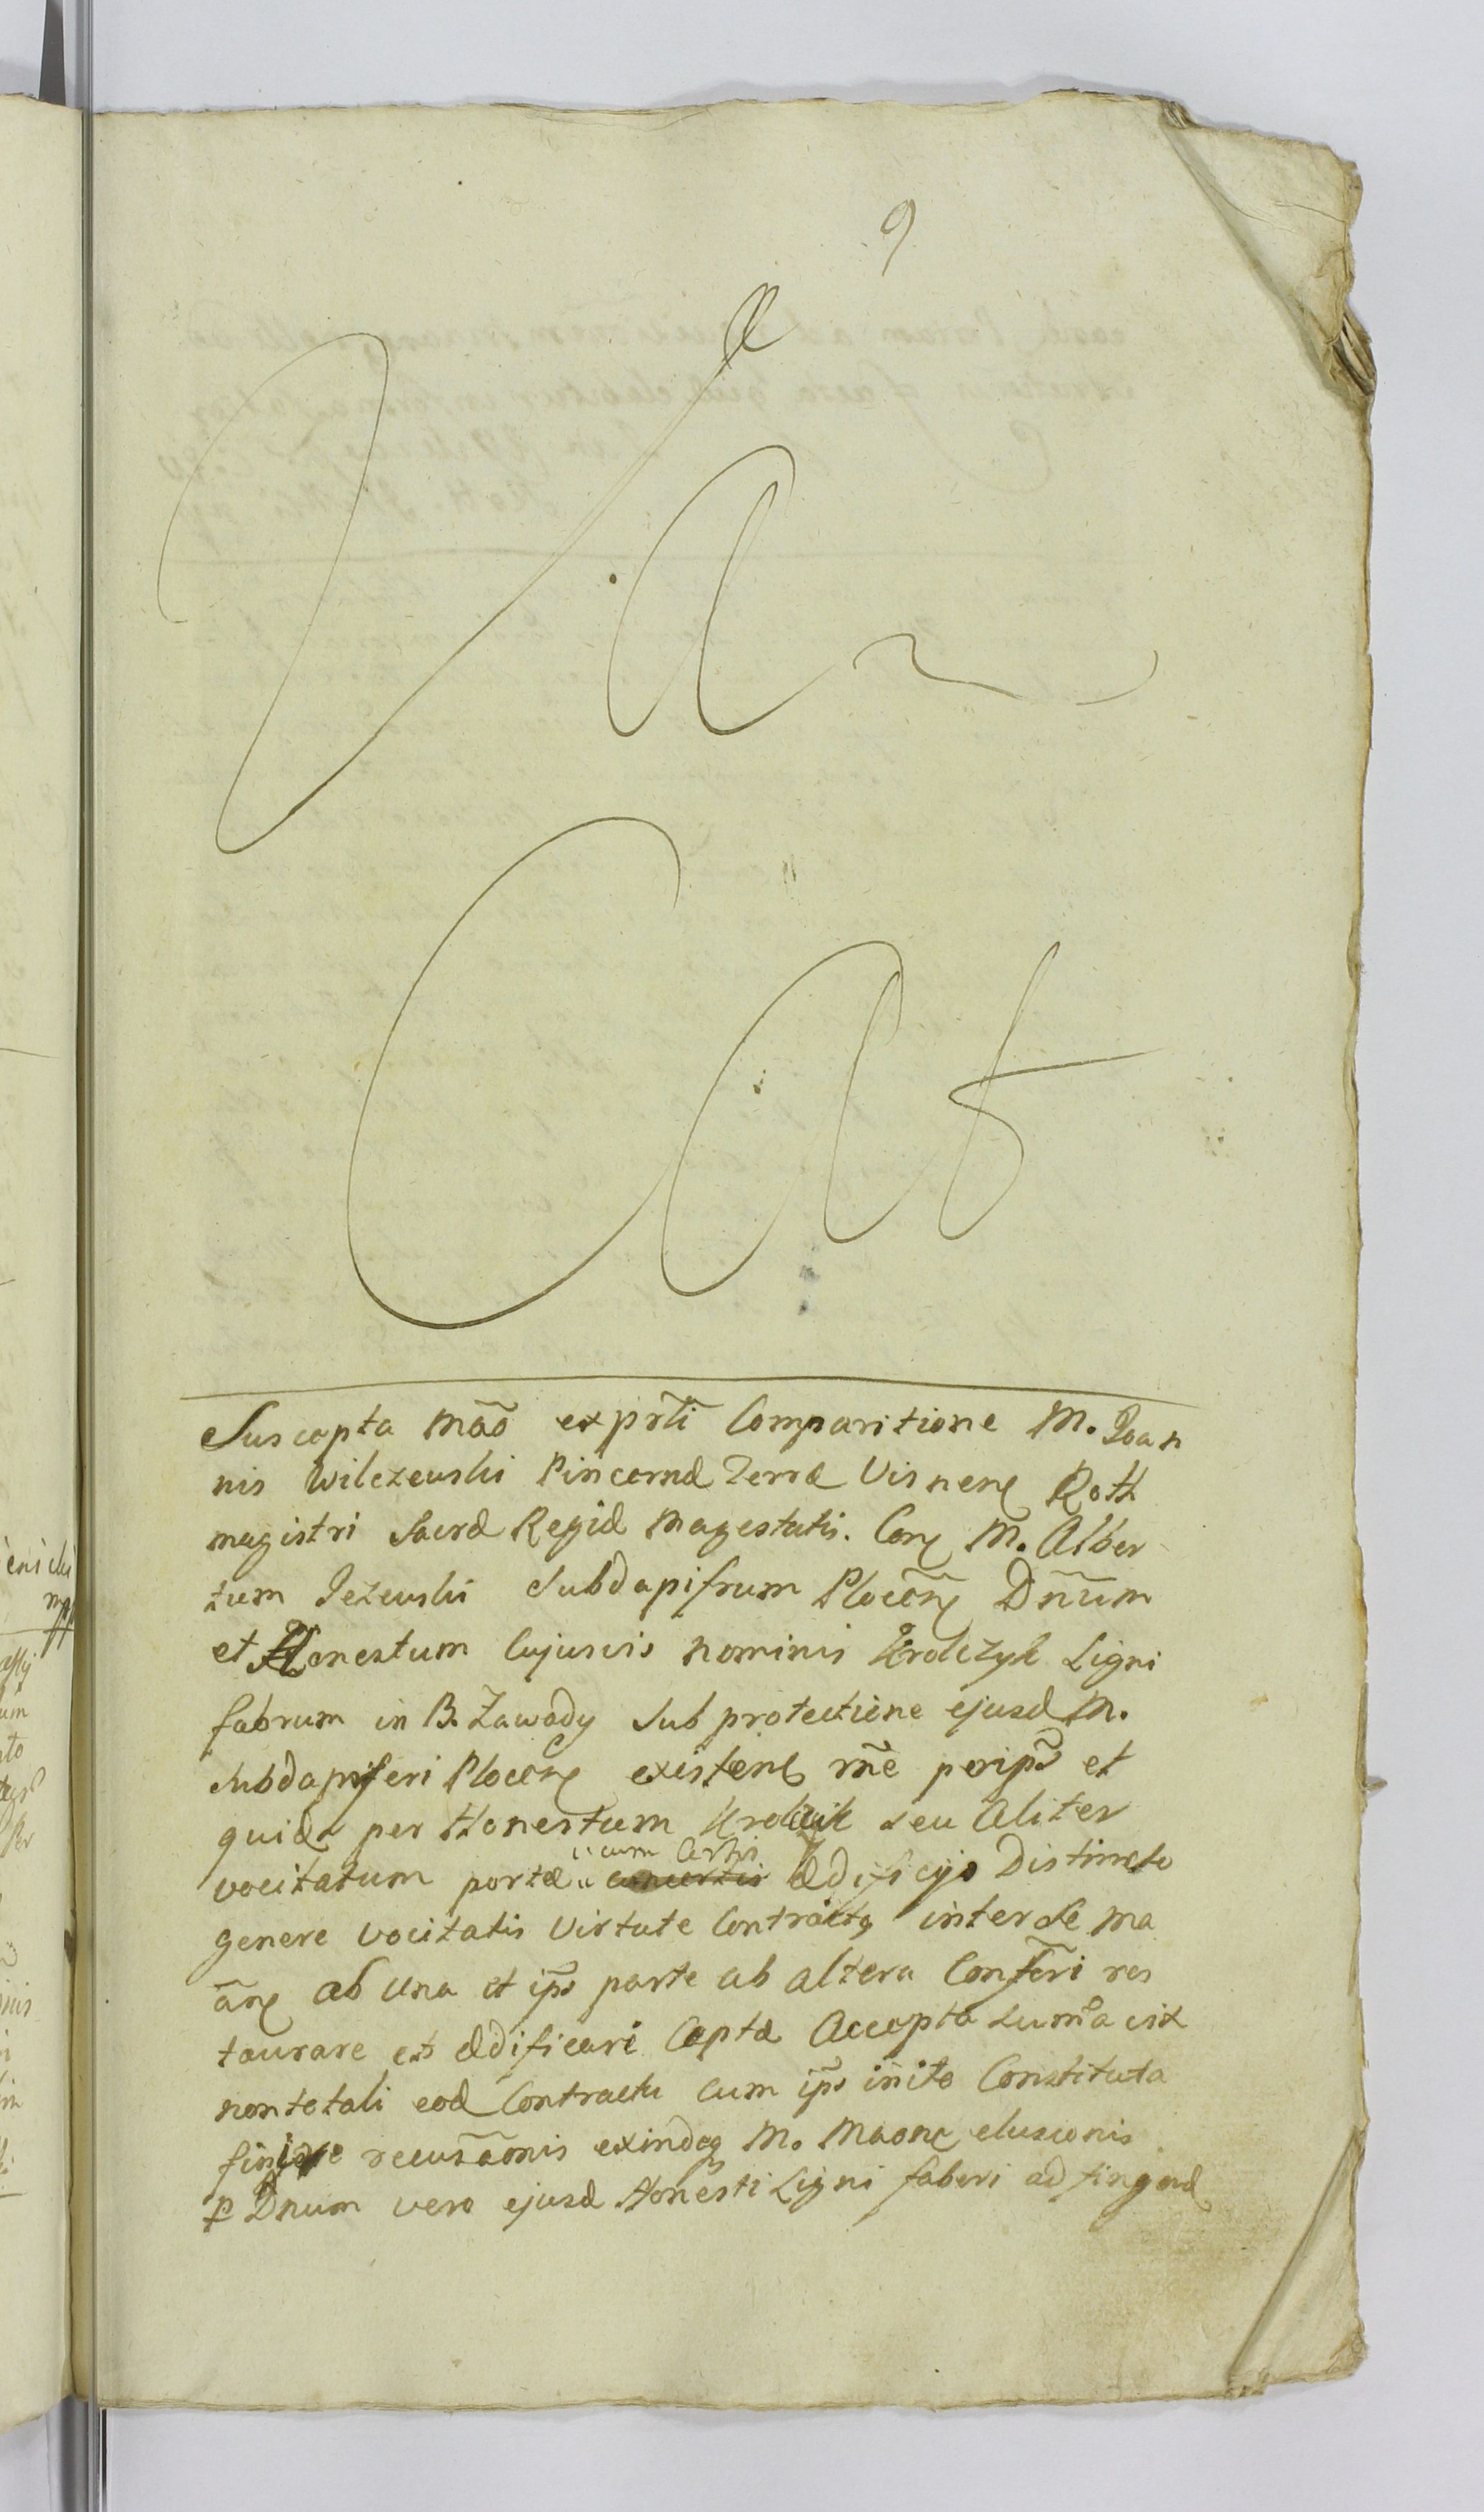 9
Vacat
Suscepta mão exprti Comparitione M. Joan
nis Wilczewski Pincernæ Terræ Visnenꝭ Roth
magistri Sacræ Regiæ Magestatis. Conꝭ M. Alber
tum Jezewski Subdapifrum Plocenꝭ Dnum
et Honestum Cujusvis nominis Krolczyk Ligni
fabrum in B. Zawady sub protectione ejusd M.
Subdapiferi Plocenꝭ existenꝭ rñe per ips et
quidē per Honestum Krolczik seu Aliter
vocitatum portæ cum Certis ædificijs Distincto
genere vocitatis Virtute Contractꝯ inter se ma
ãnꝭ ab una et ips parte ab altera Confcri res
taurare et ædificari Ceptæ Accepta summa vix
non totali eod Contractu Cum ips inito Constituta
finire recusãonis exindeq M. Maonꝭ elusionis
p Dnum vero ejusd Honesti Ligni fabori ad fingend